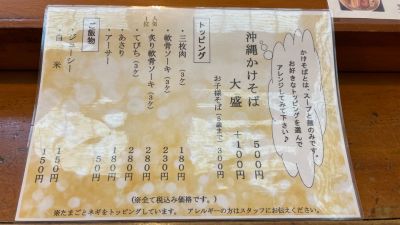 かけそばとは、スープと麺のみです。
お好きなトッピングを選んで
アレンジしてみて下さい♪
沖縄かけそば 500円
大盛 +100円
お子様そば(8歳まで) 300円
トッピング
・三枚肉(3ケ) 180円
・軟骨ソーキ(3ケ) 230円
人気1位
・炙り軟骨ソーキ(3ケ) 280円
・てびち(3ケ) 280円
・あさり 180円
・アーサー 50円
ご飯物
・ジューシー 150円
・白米 150円
(※全て税込み価格です。)
※たまごとネギをトッピングしています。 アレルギーの方はスタッフにお伝えください。